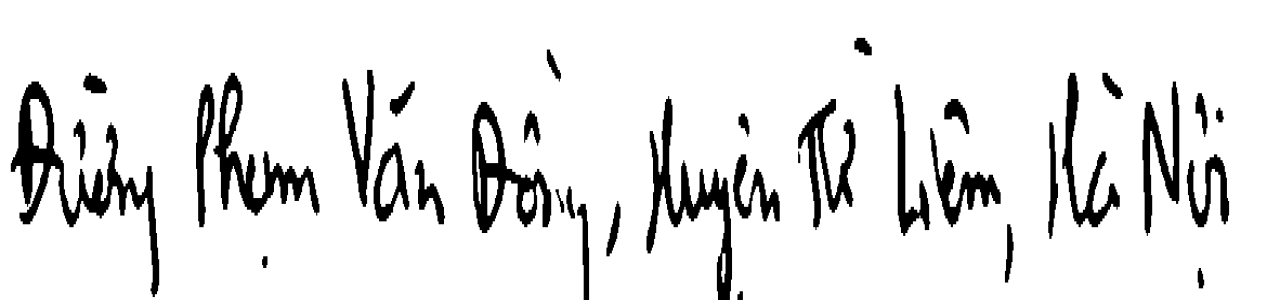 Đường Phạm Văn Đồng, Huyện Từ Liêm, Hà Nội